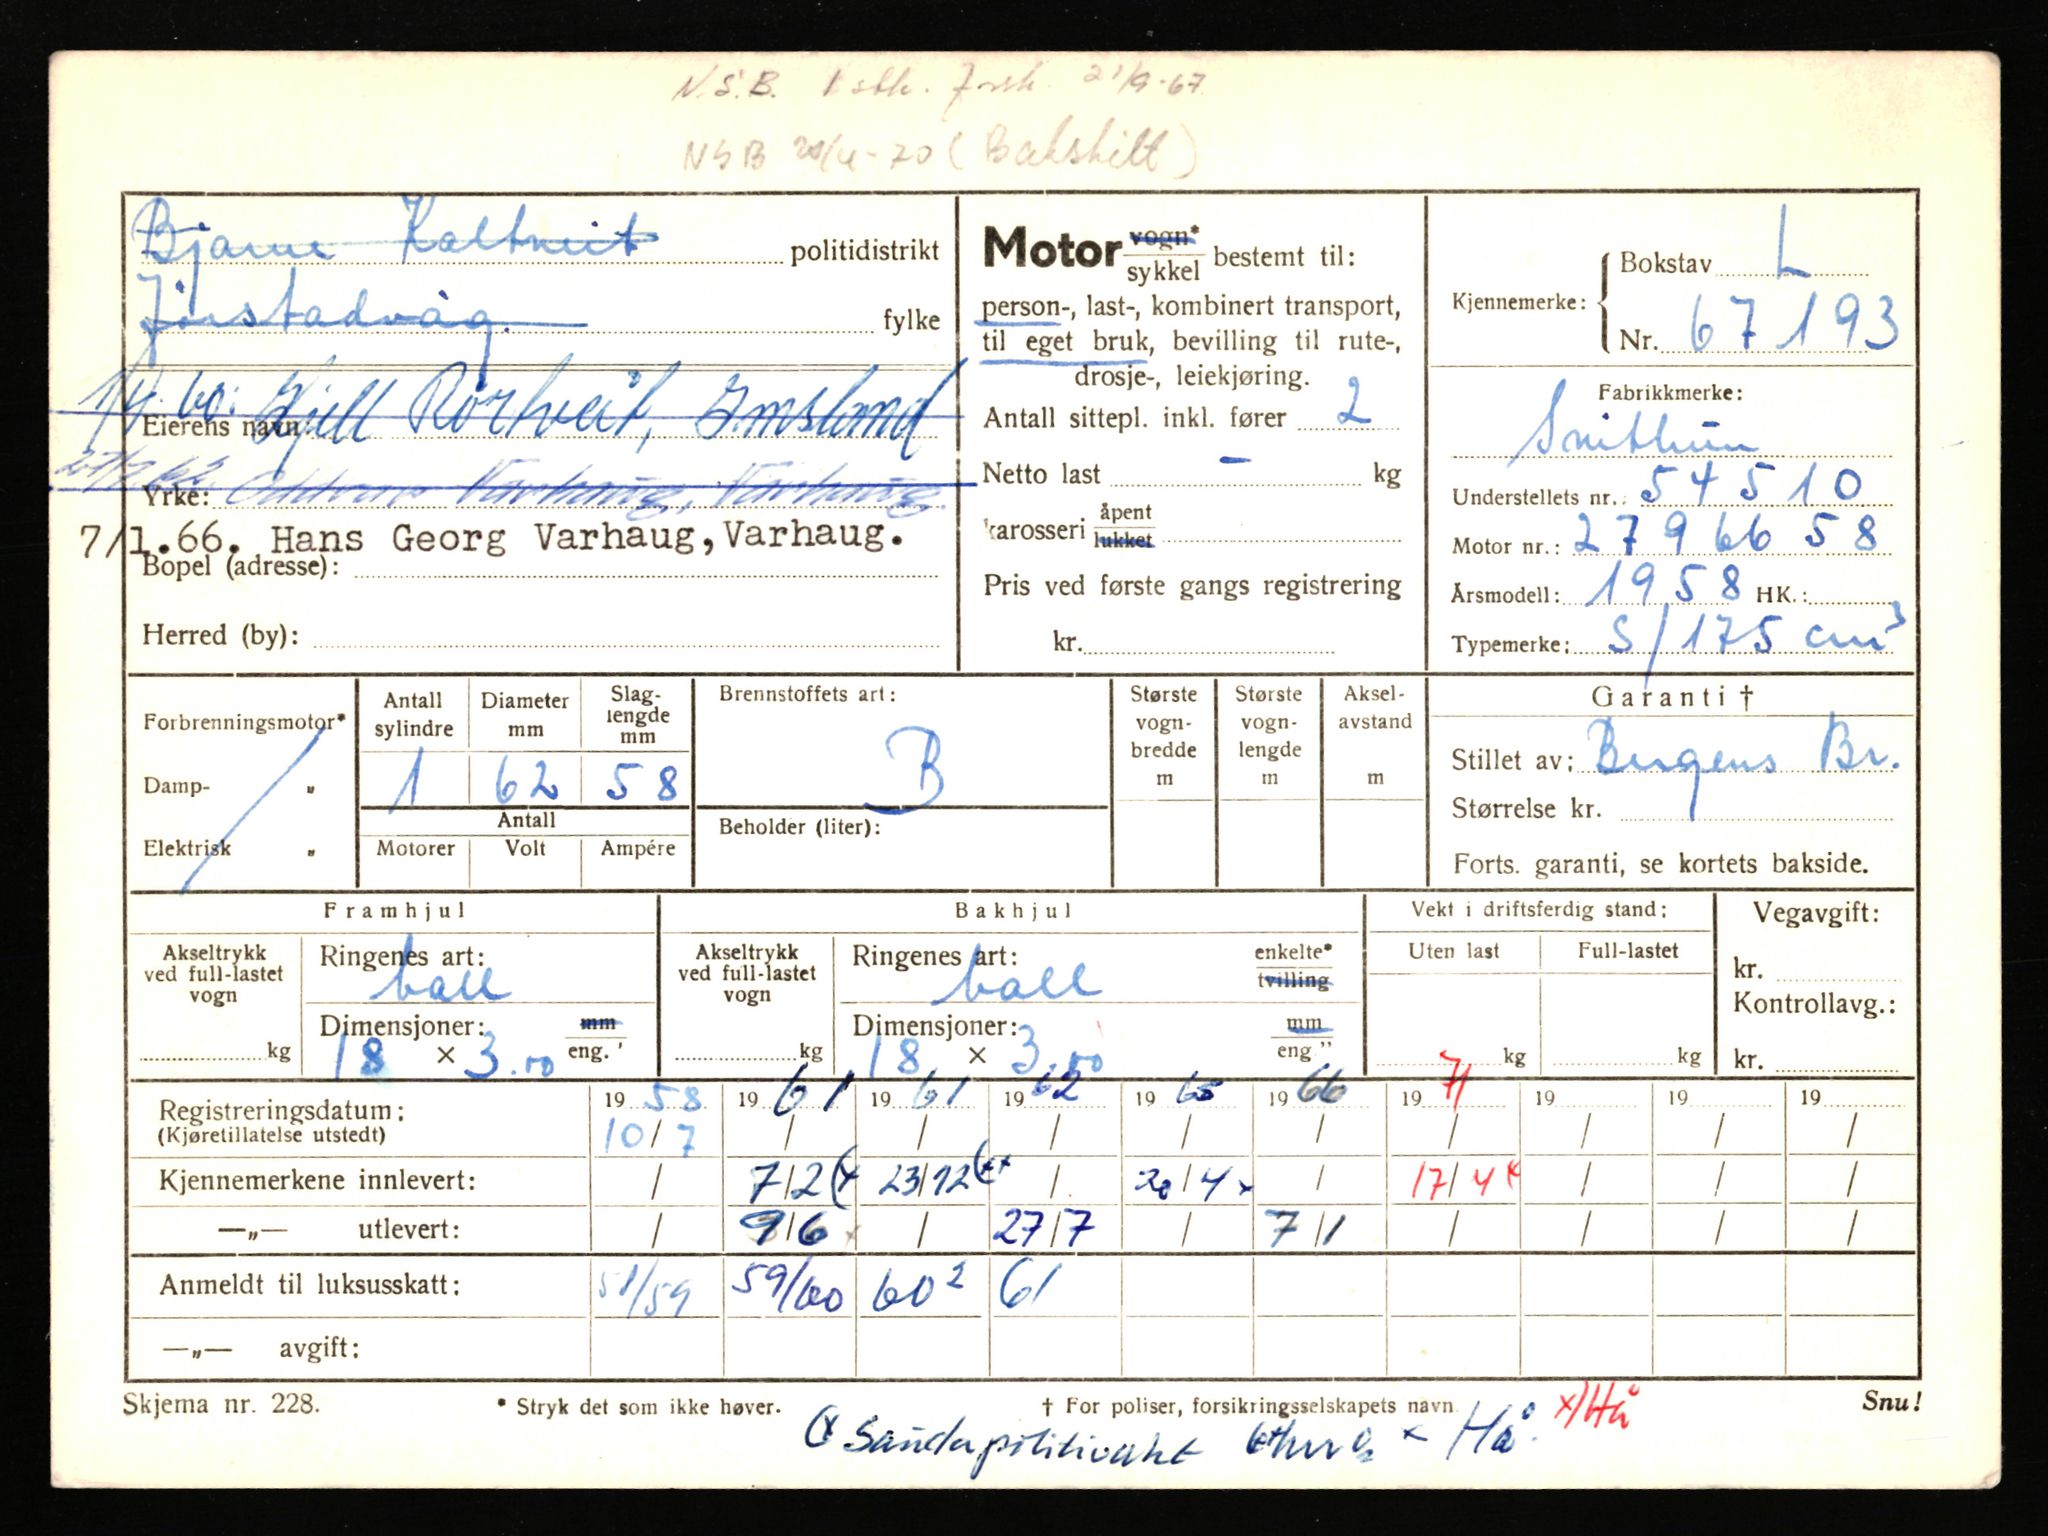 N.S.B. 1 stk. forsk. 21/9-67
NSB 20/4-70 (Bakskilt)
Bjarne Kaltveit politidistrikt
Jørstadvåg. fylke
1/4.60: Kjell Rørtveit, Imsland
Eierens navn:
27/7 62. Varhaug, Varhaug.
Yrke:
7/1.66. Hans Georg Varhaug, Varhaug.
Bopel (adresse):
Herred (by):
Motor vogn* sykkel bestemt til:
person-, last-, kombinert transport,
til eget bruk, bevilling til rute-,
drosje-, leiekjøring.
Antall sittepl. inkl. fører 2
Netto last - kg
karosseri åpent lukket
Pris ved første gangs registrering
kr.
Kjennemerke: Bokstav L
Nr. 67193
Fabrikkmerke:
Understellets nr.: 54510
Motor nr.: 2796658
Årsmodell: 1958 HK.:
Typemerke: S/175 cm³
Forbrenningsmotor*
Damp- „
Elektrisk „
Antall sylindre Diameter mm Slaglengde mm
1 62 58
Antall
Motorer Volt Ampére
Brennstoffets art:
B
Beholder (liter):
Største vognbredde m
Største vognlengde m
Akselavstand m
Garanti †
Stillet av: Bergens Br.
Størrelse kr.
Forts. garanti, se kortets bakside.
Framhjul
Akseltrykk ved full-lastet vogn
kg
Ringenes art:
ball
Dimensjoner: mm eng. "
18 × 3.00
Bakhjul
Akseltrykk ved full-lastet vogn
kg
Ringenes art: enkelte* tvilling
ball
Dimensjoner: mm eng "
18 × 3.00
Vekt i driftsferdig stand:
Uten last Full-lastet
kg kg
Vegavgift:
kr.
Kontrollavg.:
kr.
Registreringsdatum: 1958 1961 1961 1962 1965 1966 1971 19 19 19
(Kjøretillatelse utstedt) 10/7 / / / / / / / / /
Kjennemerkene innlevert: / 7/2 (x 23/12 (xx / 20/4 x / 17/4 x / / /
—„— utlevert: / 9/6 x / 27/7 / 7/1 / / / /
Anmeldt til luksusskatt: 58/59 59/60 60² 61
—„— avgift:
Skjema nr. 228. * Stryk det som ikke høver. † For poliser, forsikringsselskapets navn Snu!
(x Sauda politivakt x Hå. x/Hå